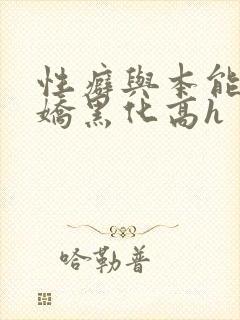 性癖與本能
嬌黑化高h
哈勒普